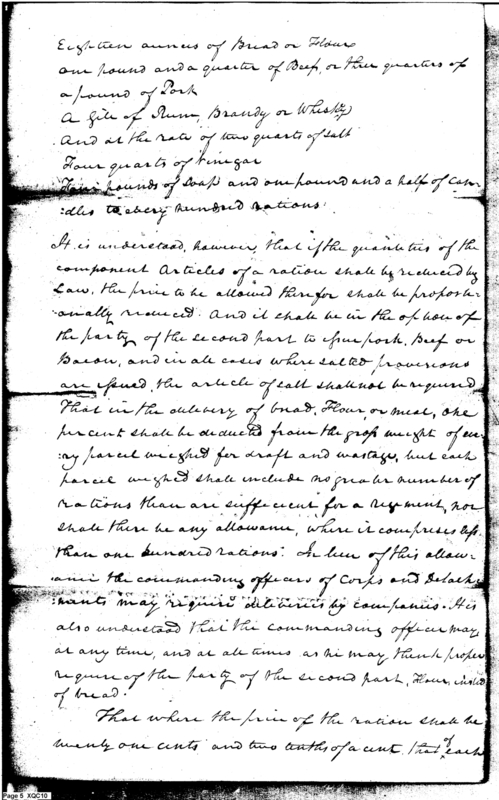 Eighteen ounces of Bread or Flour
one pound and a quarter of Beef, or three quarters of
a pound of Pork
A Gill of Rum, Brandy or Whisky
And at the rate of two quarts of Salt
Four quarts of Vinegar
Four pounds of Soap and one pound and a half of Can-
:dles to every hundred rations.
It is understood, however, that if the quantities of the
component Articles of a ration shall be reduced by
Law, the price to be allowed therefor shall be proporti-
:onally reduced. And it shall be in the option of
the party of the second part to issue pork, Beef or
Bacon, and in all cases where salted provisions
are issued, the article of salt shall not be required
That in the delivery of bread, Flour, or meat, one
per cent shall be deducted from the gross weight of eve-
:ry parcel weighed for draft and wastage, but each
parcel weighed shall include no greater number of
rations than are sufficient for a regiment, nor
shall there be any allowance, where it comprises less
than one hundred rations. In lieu of this allow-
ance the commanding officers of Corps and Detach-
:ments may require deliveries by companies. It is
also understood that the commanding officer may
at any time, and at all times as he may think proper
require of the party of the second part, Flour, instead
of bread.
That where the price of the ration shall be
twenty one cents and two tenths of a cent, that of each
Page 5 XQC10